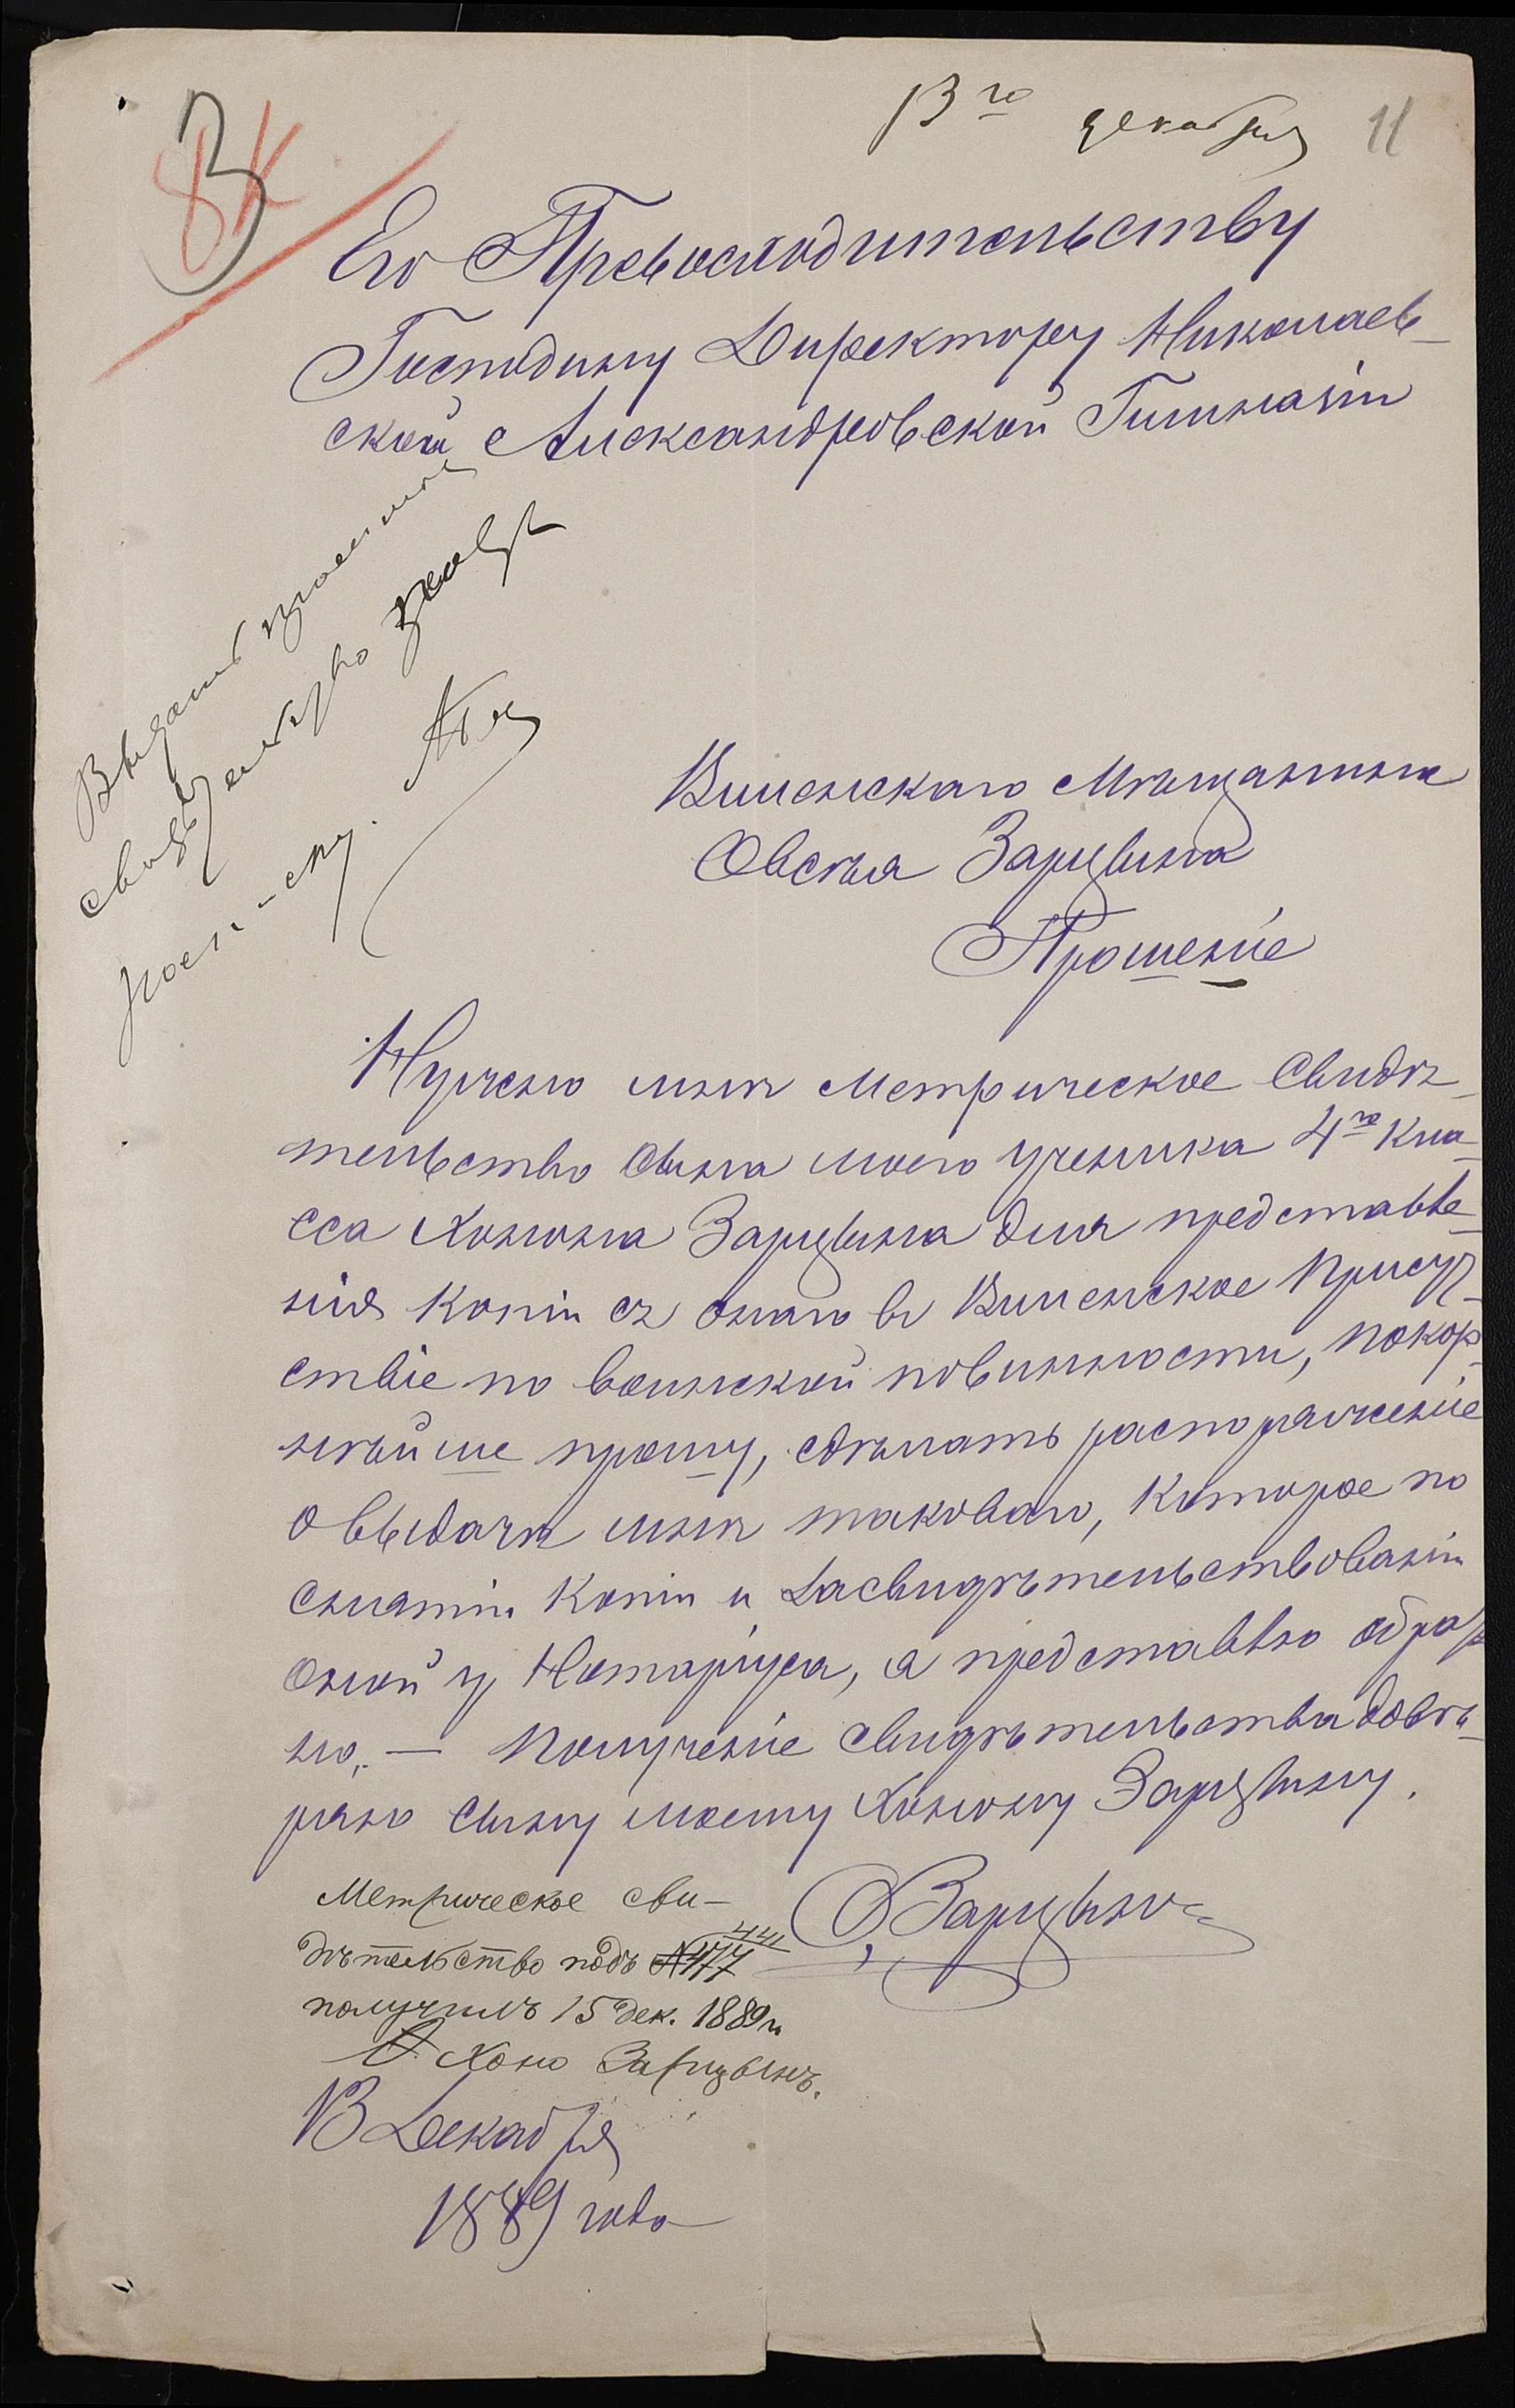 13го декабря 11
3
8К
Его Превосходительству
Господину Директору Николаев-
ской Александровской Гимназіи
Выдать просимое
свидѣтельство
Виленскаго Мѣщанина
Овсѣя Зарцына
Прошеніе
Нужно мнѣ Метрическое Свидѣ-
тельство сына моего ученика 4го Кла-
сса Хонона Зарцына для представле-
нія Копіи съ онаго въ Виленское Присут-
ствіе по воинской повинности, покор-
нѣйше прошу, сдѣлать распоряженіе
о выдачи мнѣ таковаго, Которое по
снятіи Копіи и Засвидѣтельствованіи
оной у Нотаріуса, я представлю обрат-
но. — Полученіе свидѣтельства довѣ-
ряю Сыну моему Хонону Зарцыну.
О. Зарцынъ
Метрическое сви-
дѣтельство подъ №477 441
получилъ 15 дек. 1889 г.
Хоно Зарцынъ.
13 Декабря
1889 года